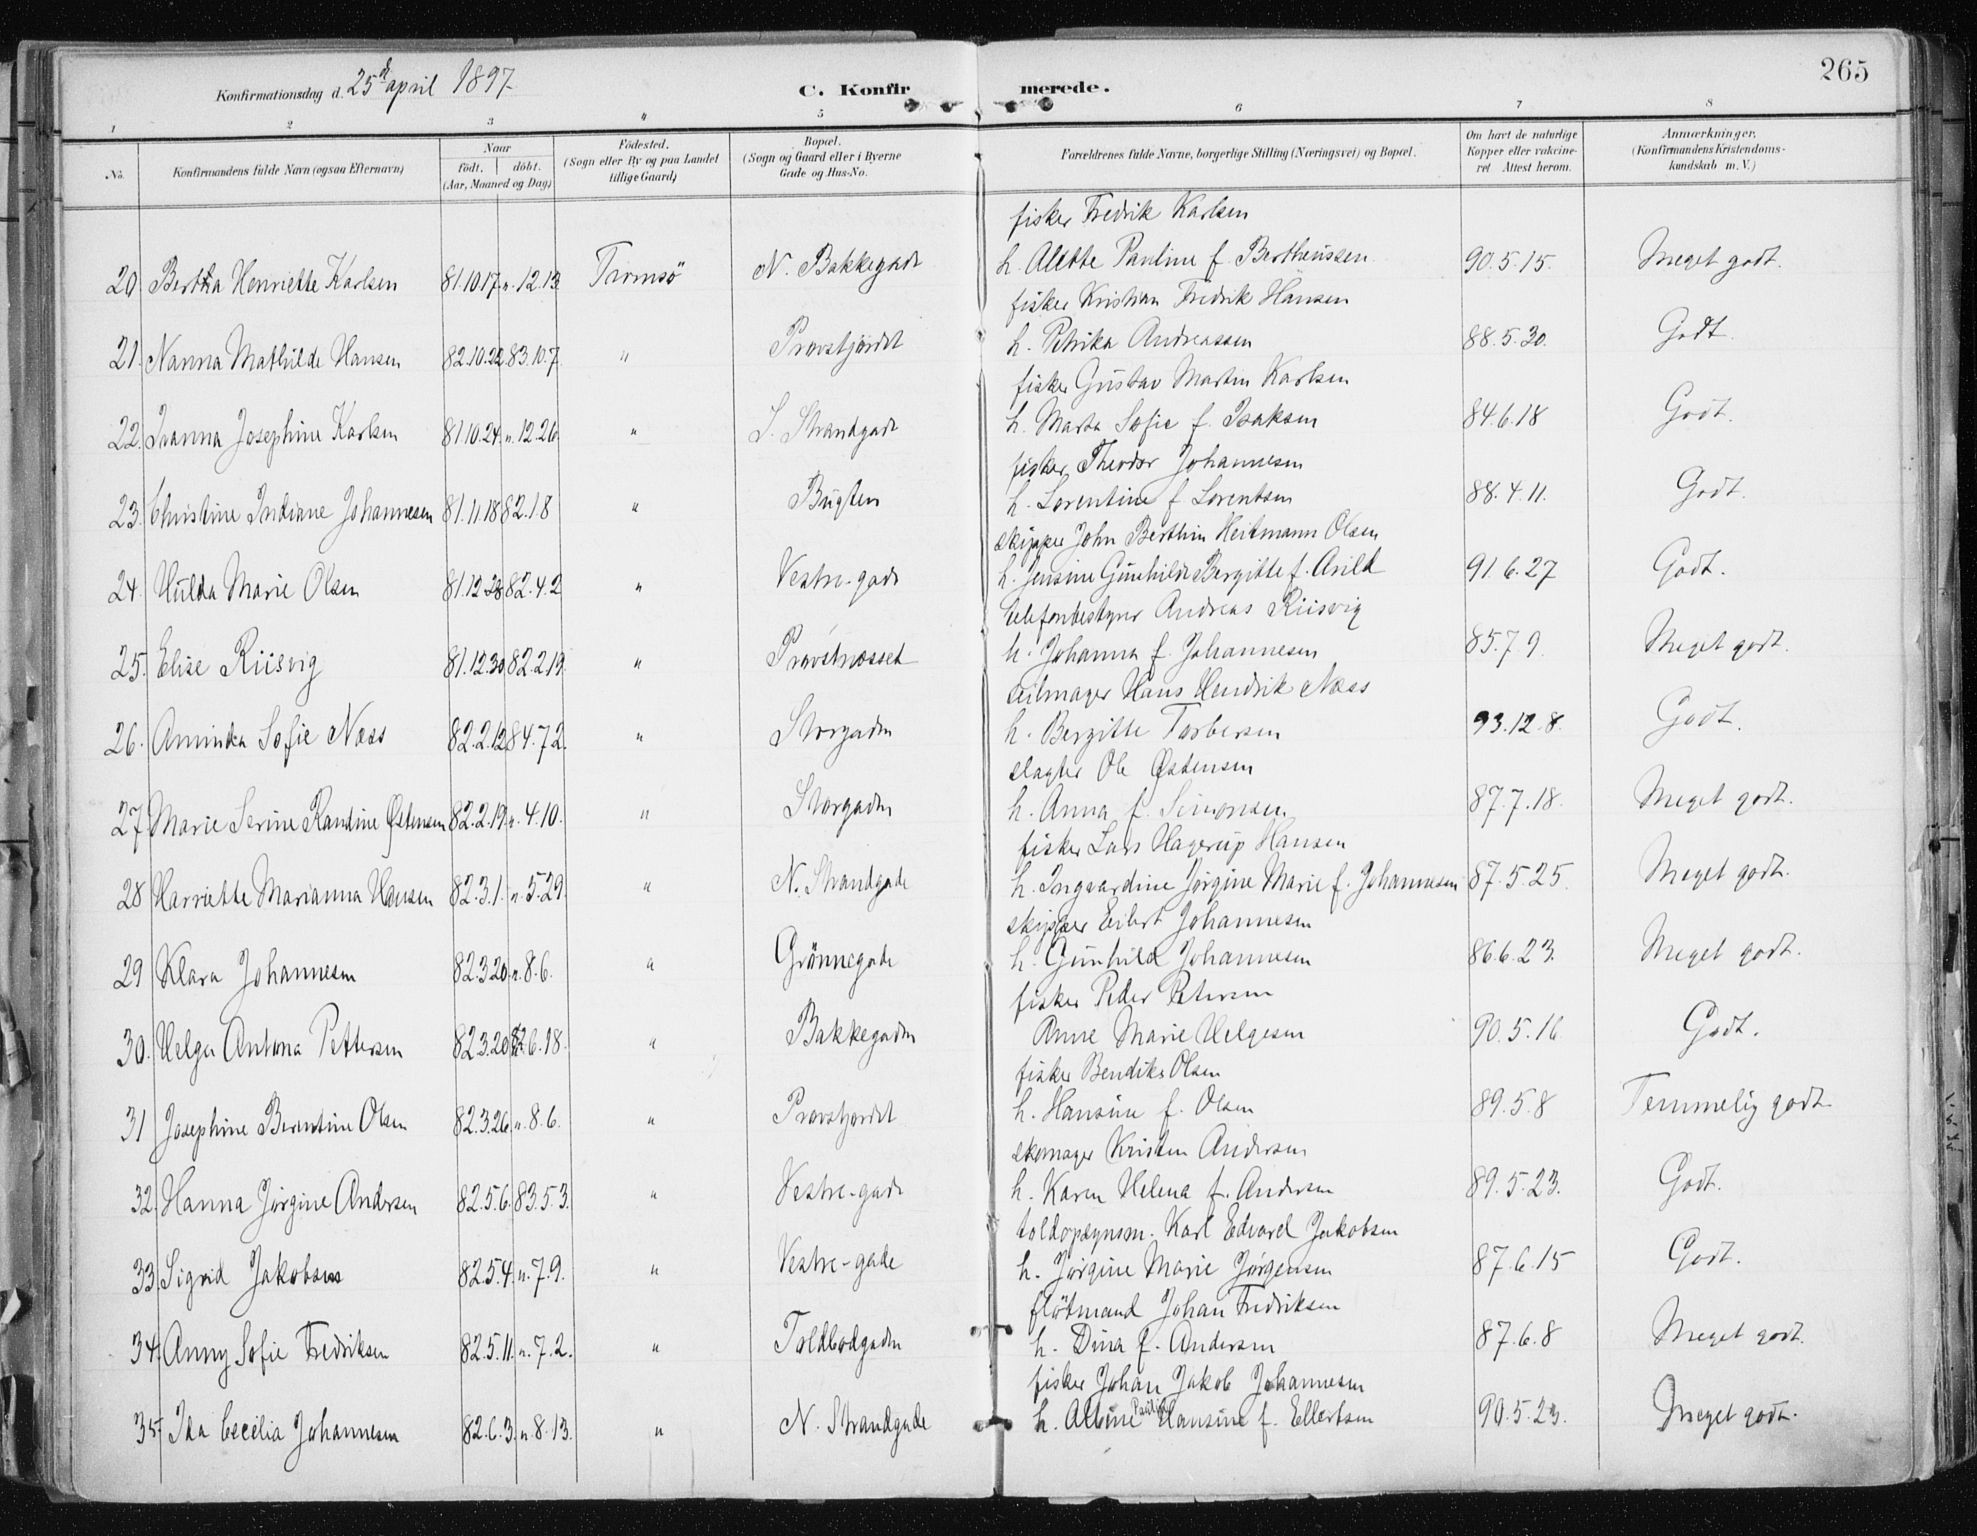 265
Konfirmationsdag d. 25de april 1897.
C. Konfirmerede.
1 2 3 " 5 6 7 8
No. Konfirmandens fulde Navn (ogsaa Efternavn) Naar födt. döbt. (Aar, Maaned og Dag) Födested. (Sogn eller By og paa Landet tillige Gaard) Bopæl. (Sogn og Gaard eller i Byerne Gade og Hus-No. Forældrenes fulde Navne, borgerlige Stilling (Næringsvei) og Bopæl. Om havt de naturlige Kopper eller vakcineret Attest herom. Anmærkninger. (Konfirmandens Kristendomskundskab m. V.)
fisker Fredrik Karlsen
20. Bertha Henriette Karlsen 81.10.17 n. 12.13 Tromsö N. Bakkegade h. Alette Pauline f. Bertheussen 90.5.15. Meget godt.
fisker Kristian Fredrik Hansen
21. Nanna Mathilde Hansen 82.10.22 83.10.7 " Provstjordet h. Petrika Andreassen 88.5.30. Godt.
fisker Gustav Martin Karlsen
22. Ivanna Josephine Karlsen 81.10.24 n. 12.26 " S. Strandgade h. Marta Sofie f. Isaksen 84.6.18 Godt.
fisker Theodor Johannesen
23. Christine Indiane Johannesen 81.11.18 82.1.8 " Bugten h. Lorentine f. Lorentsen 88.4.11. Godt.
skipper John Berthin Heitmann Olsen
24. Hulda Marie Olsen 81.12.28 82.4.2 " Vestre-gade h. Jensine Gunhilde Bergitte f. Arild 91.6.27 Godt.
telefonbestyrer Andreas Riisvig
25. Elise Riisvig 81.12.30 82.2.19. " Provstnesset h. Johanna f. Johannesen 85.7.9. Meget godt.
seilmager Hans Hendrik Næss
26. Aminda Sofie Næss 82.2.12 84.7.2. " Storgaden h. Bergitte Torbersen 93.12.8. Godt.
slagter Ole Østensen
27. Marie Serine Randine Østensen 82.2.19 n. 4.10. " Storgaden h. Anna f. Simonsen 87.7.18. Meget godt.
fisker Lars Hagerup Hansen
28 Harriette Marianna Hansen 82.3.1. n. 5.29. " N. Strandgade h. Ingvardine Jørgine Marie f. Johannesen 87.5.25. Meget godt.
skipper Eilert Johannesen
29 Klara Johannesen 82.3.20 n. 8.6. " Grönnegade h. Gunhild Johannesen 86.6.23. Meget godt.
fisker Peder Petersen
30. Helga Antona Pettersen 82.3.20 82.6.18. " Bakkegaden Anne Marie Helgesen 90.5.16 Godt.
fisker Bendiks Olsen
31 Josephine Berntine Olsen 82.3.26 n. 8.6. " Provstjordet h. Hansine f. Olsen 89.5.8 Temmelig godt.
skomager Kristen Andersen
32. Hanna Jørgine Andersen 82.5.6. 83.5.3. " Vestre-gade h. Karen Helena f. Andersen 89.5.23. Godt.
toldopsynsm. Karl Edvard Jakobsen
33. Sigrid Jakobsen 82.5.4. n. 7.9. " Vestre-gade h. Jørgine Marie Jørgensen 87.6.15 Godt.
flötmand Johan Fredriksen
34. Anny Sofie Fredriksen 82.5.11. n. 7.2. " Toldbodgaden h. Dina f. Andersen 87.6.8 Meget godt.
fisker Johan Jakob Johannesen
35. Ida Cecelia Johannesen 82.6.3. n. 8.13. " N. Strandgade h. Albine Pauline Hansine f. Ellertsen 90.5.23. Meget godt.